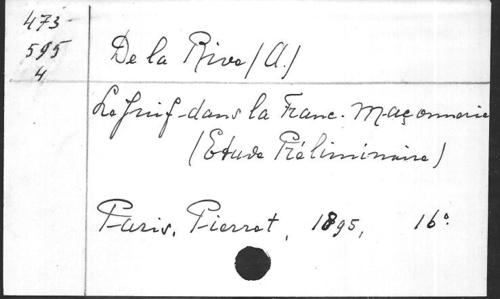 473-
595
4
De la Rive (A.)
Le Juif dans la Franc-Maçonnerie
(Etude Préliminaire)
Paris, Pierret, 1895, 16°